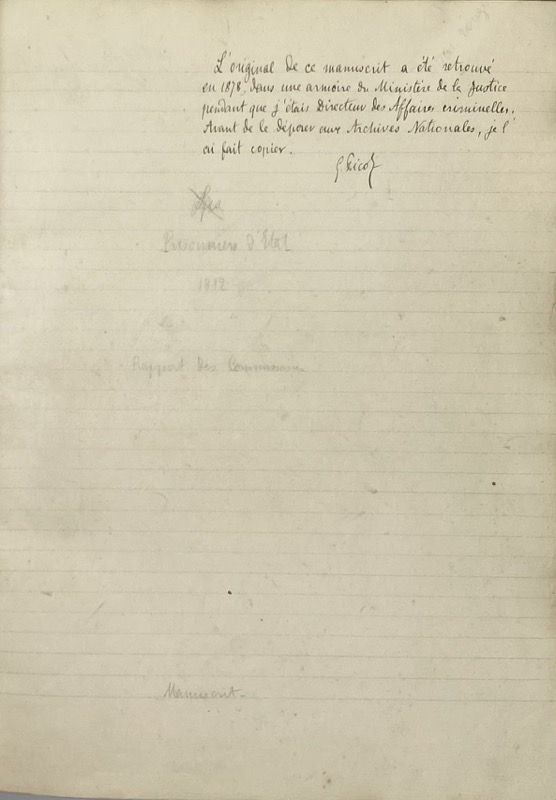 L'original de ce manuscrit a été retrouvé
en 1878, dans une armoire du Ministère de la Justice
pendant que j'étais Directeur des Affaires criminelles.
Avant de le déposer aux Archives Nationales, je l'
ai fait copier.
G. Picot
Les
Prisonniers d'Etat
1812
Rapport des Commissaires
Manuscrit.